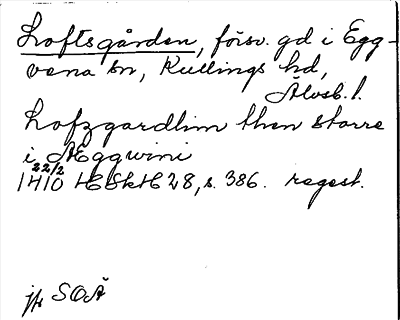 Loftsgården, försv. gd i Egg-
vena sn, Kullings hd,
Älvsb. l.
Lofzgardhin then større
i Æggwini
22/2
1410 HSkH 28, s. 386. regest.
jfr SOÄ